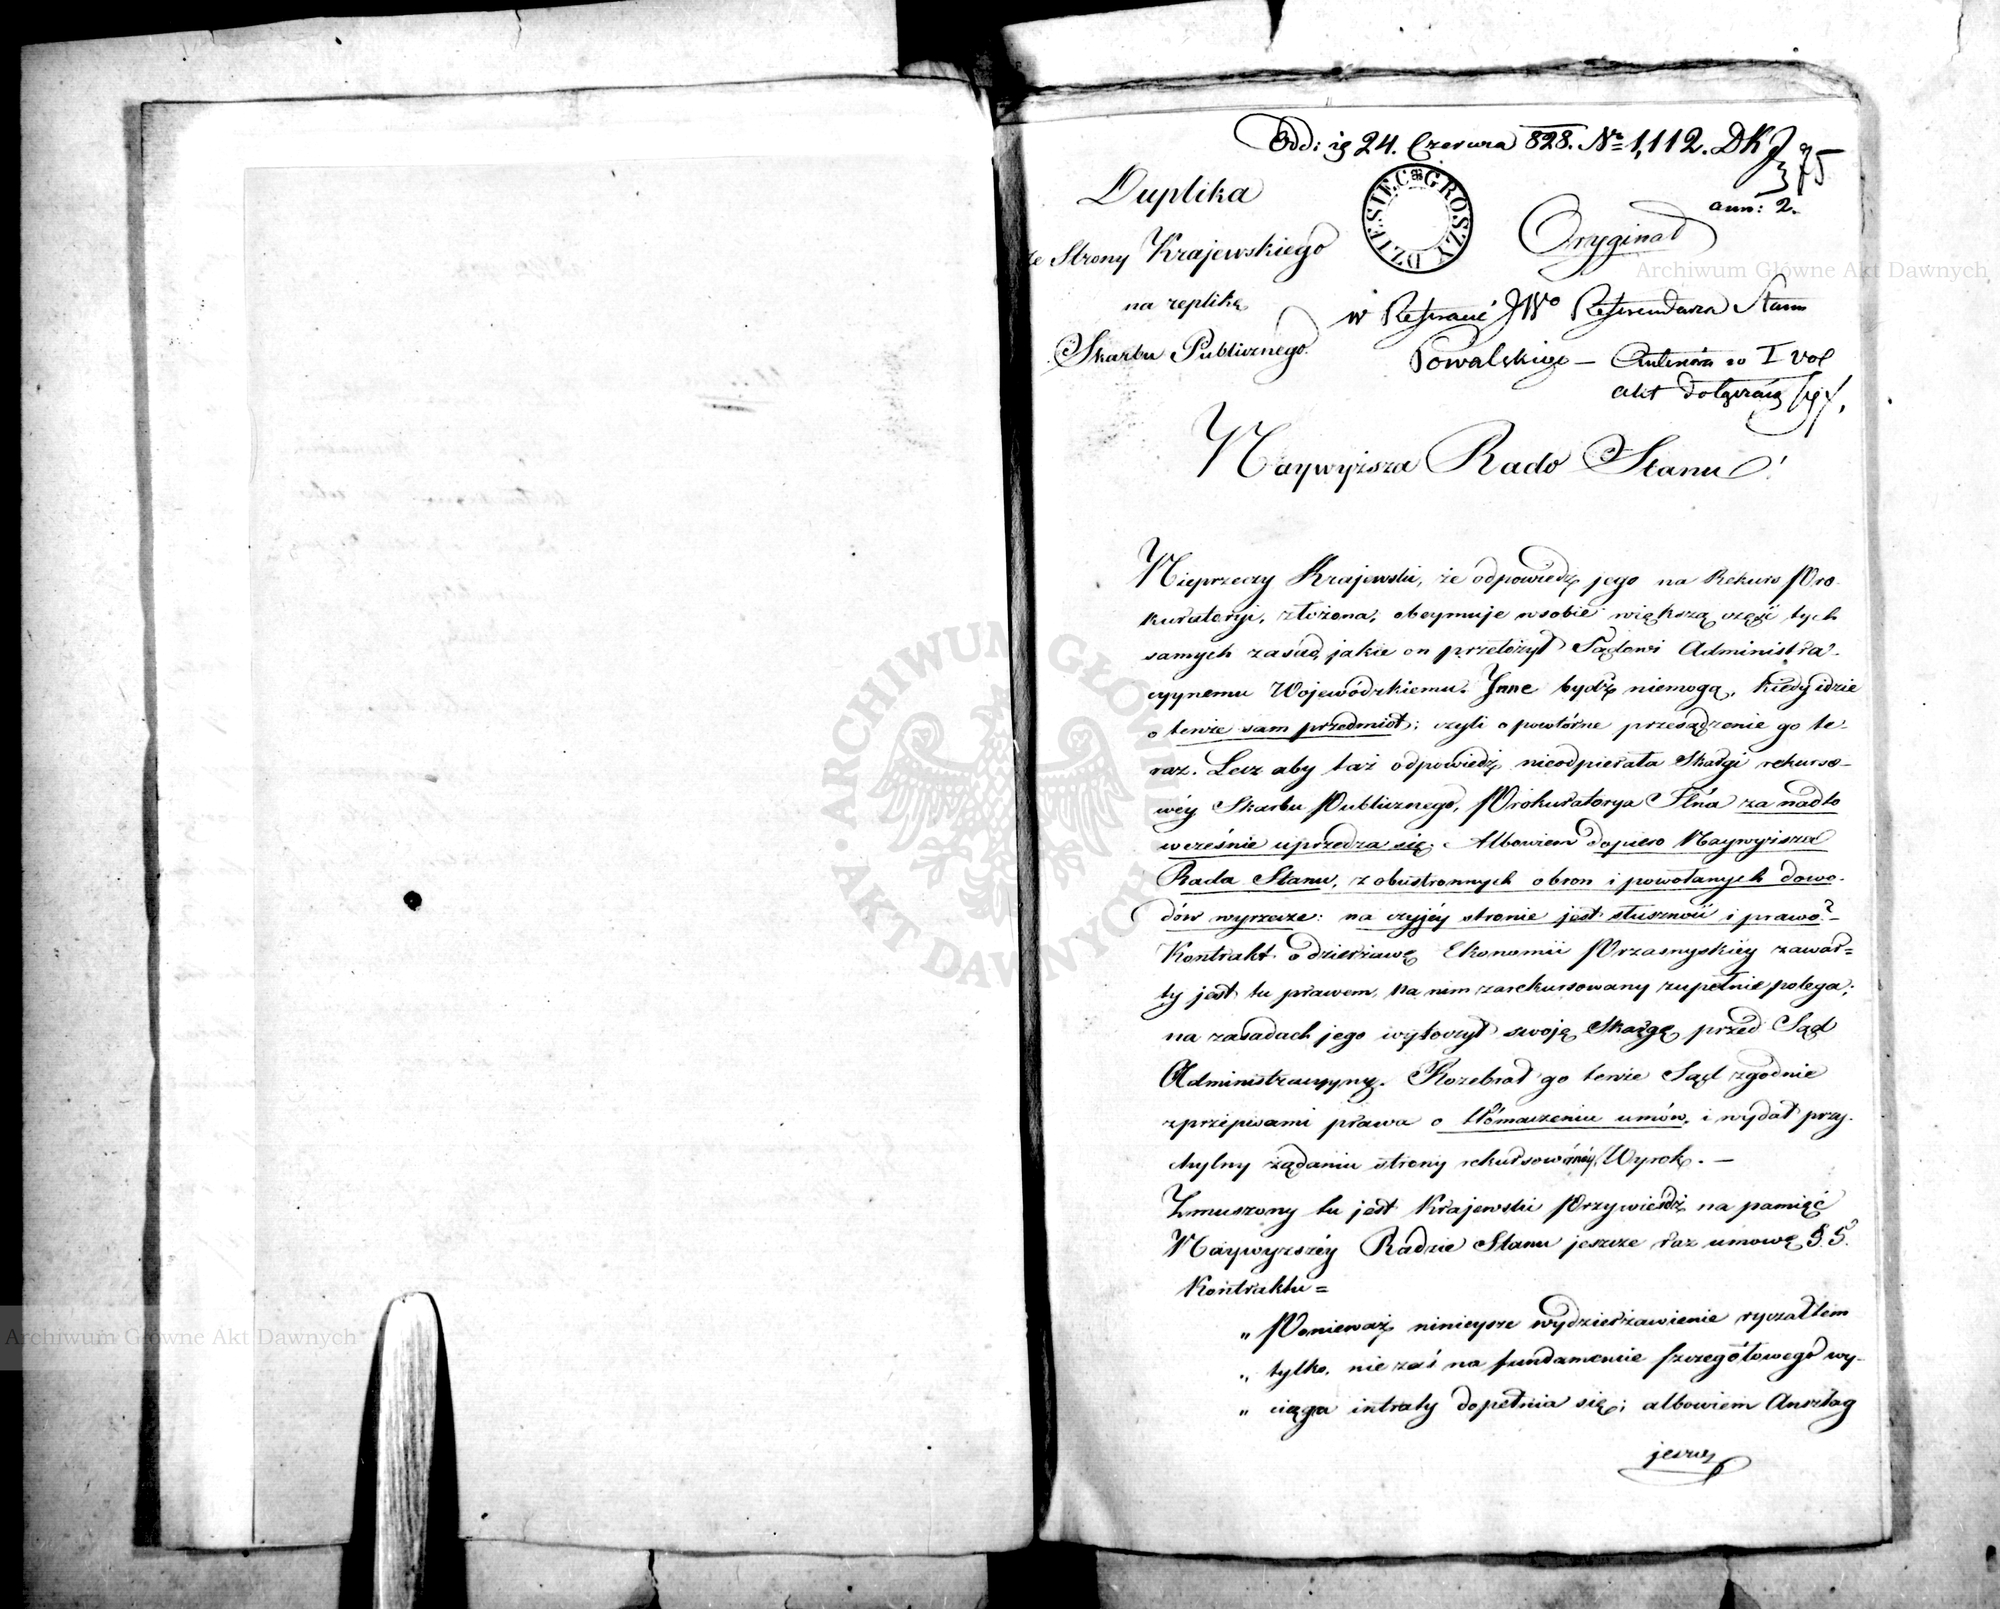 Odd: 24. Czerwca 828. № 1,112. DK
375
ann: 2.
Duplika
ze Strony Krajewskiego
na replikę
Skarbu Publicznego.
DZIESIĘĆ GROSZY
Oryginał
w Referacie JWo Referendarza Stanu
Powalskiego — I vol
akt dołączaią
Naywyższa Rado Stanu!
Nieprzeczy Krajewski, że odpowiedź jego na Rekurs Pro-
kuratoryi, złożona, obeymuje wsobie większą część tych
samych zasad, jakie on przełożył Sądowi Administra-
cyynemu Wojewódzkiemu. Inne bydź niemogą, kiedy idzie
o tenże sam przedmiot; czyli o powtórne przesądzenie go te-
raz. Lecz aby taż odpowiedź nieodpierała Skargi rekurso-
wéy Skarbu Publicznego, Prokuratorya Jlna za nadto
wcześnie uprzedza się. Albowiem dopiero Naywyższa
Rada Stanu, z obustronnych obron i powołanych dowo-
dów wyrzecze: na czyjéy stronie jest słuszność i prawo? –
Kontrakt o dzierżawę Ekonomii Przasnyskiéy zawar=
ty jest tu prawem, na nim zarekursowany zupełnie polega;
na zasadach jego wytoczył swoją Skargę przed Sąd
Administracyyny. Rozebrał go tenże Sąd zgodnie
zprzepisami prawa o tłómaczeniu umów, i wydał przy-
chylny żądaniu strony rekursowanéy Wyrok. —
Zmuszony tu jest Krajewski Przywieśdź na pamięć
Naywyższéy Radzie Stanu jeszcze raz umowę §. 5.
Kontraktu =
„ Ponieważ ninieysze wydzierżawienie ryczałtem
„ tylko, nie zaś na fundamencie szczegółowego wy-
„ ciągu intraty dopełnia się; albowiem Anszlag
jeszcze
Archiwum Główne Akt Dawnych
Archiwum Główne Akt Dawnych
ARCHIWUM GŁÓWNE AKT DAWNYCH